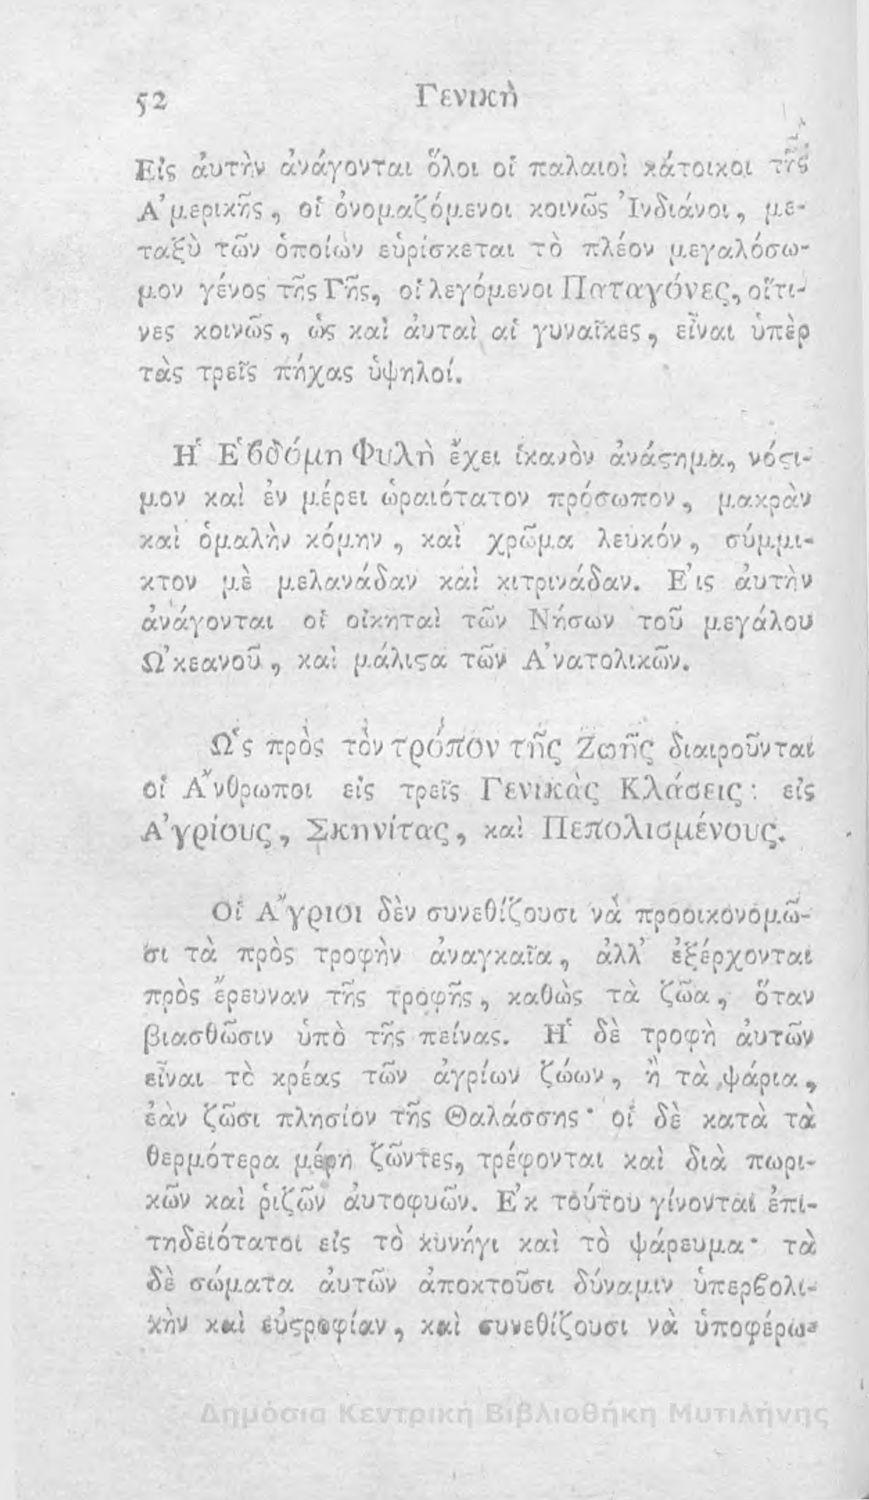 52 Γενικὴ
Εἰς ἀυτὴν ἀνάγονται ὅλοι οἱ παλαιοὶ κάτοικοι τῆς
Ἀμερικῆς, οἱ ὀνομαζόμενοι κοινῶς Ἰνδιάνοι, με-
ταξὺ τῶν ὁποίων εὑρίσκεται τὸ πλέον μεγαλόσω-
μον γένος τῆς Γῆς, οἱ λεγόμενοι Παταγόνες, οἵτι-
νες κοινῶς, ὡς καὶ ἀυταὶ αἱ γυναῖκες, εἶναι ὑπὲρ
τὰς τρεῖς πήχας ὑψηλοί.
Ἡ Ἑβδόμη Φυλὴ ἔχει ἱκανὸν ἀνάςημα, νόςι-
μον καὶ ἐν μέρει ὡραιότατον πρόσωπον, μακρὰν
καὶ ὁμαλὴν κόμην, καὶ χρῶμα λευκόν, σύμμι-
κτον μὲ μελανάδαν καὶ κιτρινάδαν. Ἐις ἀυτὴν
ἀνάγονται οἱ οἰκηταὶ τῶν Νήσων τοῦ μεγάλου
Ὠκεανοῦ, καὶ μάλιςα τῶν Ἀνατολικῶν.
Ὡς πρὸς τὸν τρόπον τῆς Ζωῆς διαιροῦνται
οἱ Ἄνθρωποι εἰς τρεῖς Γενικὰς Κλάσεις: εἰς
Ἀγρίους, Σκηνίτας, καὶ Πεπολισμένους.
Οἱ Ἄγριοι δὲν συνεθίζουσι νὰ προοικονομῶ-
σι τὰ πρὸς τροφὴν ἀναγκαῖα, ἀλλ' ἐξέρχονται
πρὸς ἔρευναν τῆς τροφῆς, καθὼς τὰ ζῶα, ὅταν
βιασθῶσιν ὑπὸ τῆς πείνας. Ἡ δὲ τροφὴ ἀυτῶν
εἶναι τὸ κρέας τῶν ἀγρίων ζώων, ἢ τὰ ψάρια,
ἐὰν ζῶσι πλησίον τῆς Θαλάσσης· οἱ δὲ κατὰ τὰ
θερμότερα μέρη ζῶντες, τρέφονται καὶ διὰ πωρι-
κῶν καὶ ῥιζῶν ἀυτοφυῶν. Ἐκ τούτου γίνονται ἐπι-
τηδειότατοι εἰς τὸ κυνήγι καὶ τὸ ψάρευμα· τὰ
δὲ σώματα ἀυτῶν ἀποκτοῦσι δύναμιν ὑπερβολι-
κὴν καὶ εὐςροφίαν, καὶ συνεθίζουσι νὰ ὑποφέρω-
Δημόσια Κεντρική Βιβλιοθήκη Μυτιλήνης